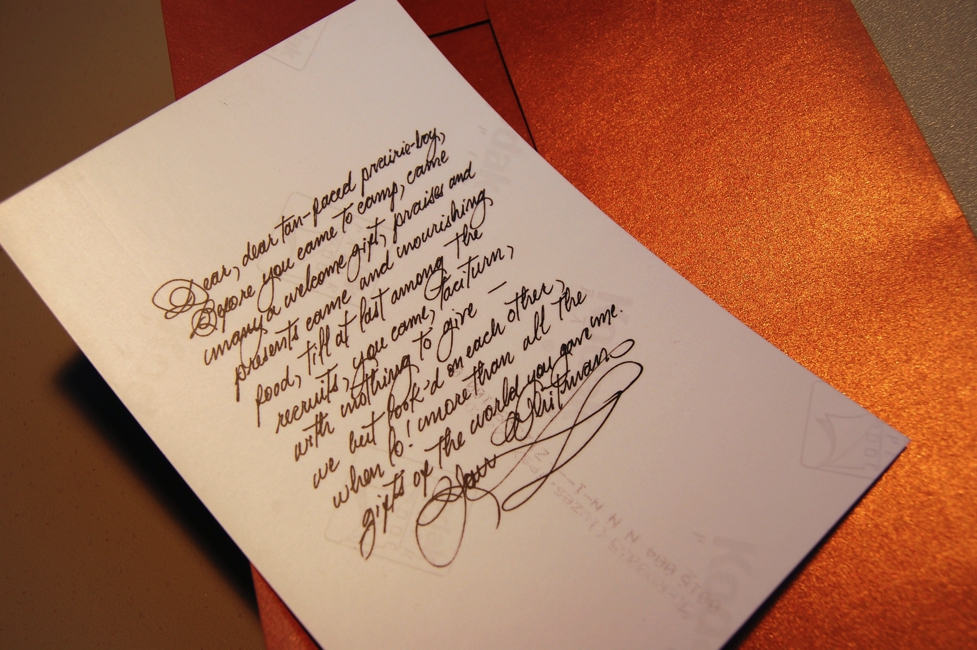 Dear, dear tan-faced prairie-boy,
Before you came to camp, came
many a welcome gift, praises and
presents came and nourishing
food, till at last among the
recruits, you came, taciturn,
with nothing to give –
we but look'd on each other,
when lo! more than all the
gifts of the world you gave me.
Whitman.